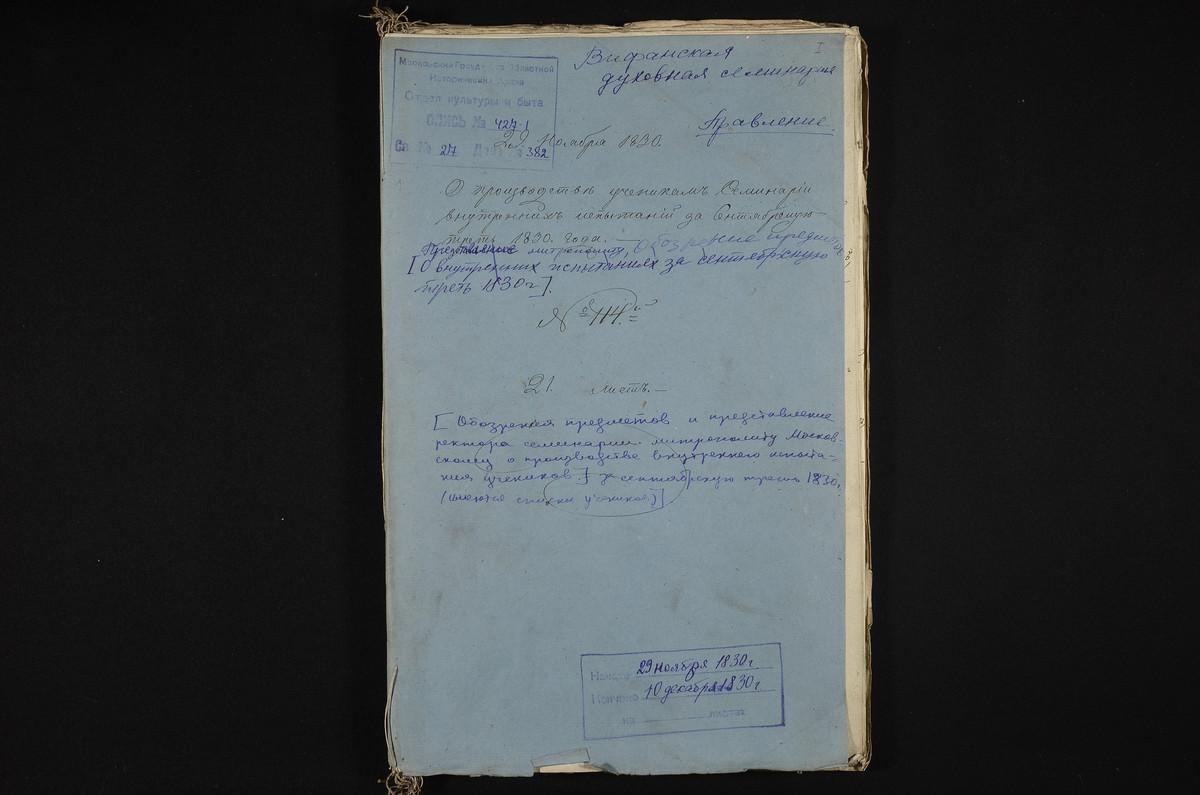 I
Вифанская
духовная семинария
Правление.
Московский Город и Областной
Исторический Архив
Отдел культуры и быта
ОПИСЬ № 427-1
Св. № 27 Дело № 382
29 Ноября 1830.
О производстве ученикамъ Семинаріи
внутреннихъ испытаній за Сентябрскую
треть 1830. года.
Представление митрополиту, Обозрение предметов
[О внутренних испытаниях за сентябрскую
треть 1830 г.].
№ 114.
21. листъ.
[Обозрения предметов и представление
ректора семинарии митрополиту Москов-
скому о производстве внутреннего испыта-
ния учеников.] за сентябрскую треть 1830г.
(имеются списки учеников)]
Начато 29 ноября 1830 г
Кончено 10 декабря 1830 г
на листах